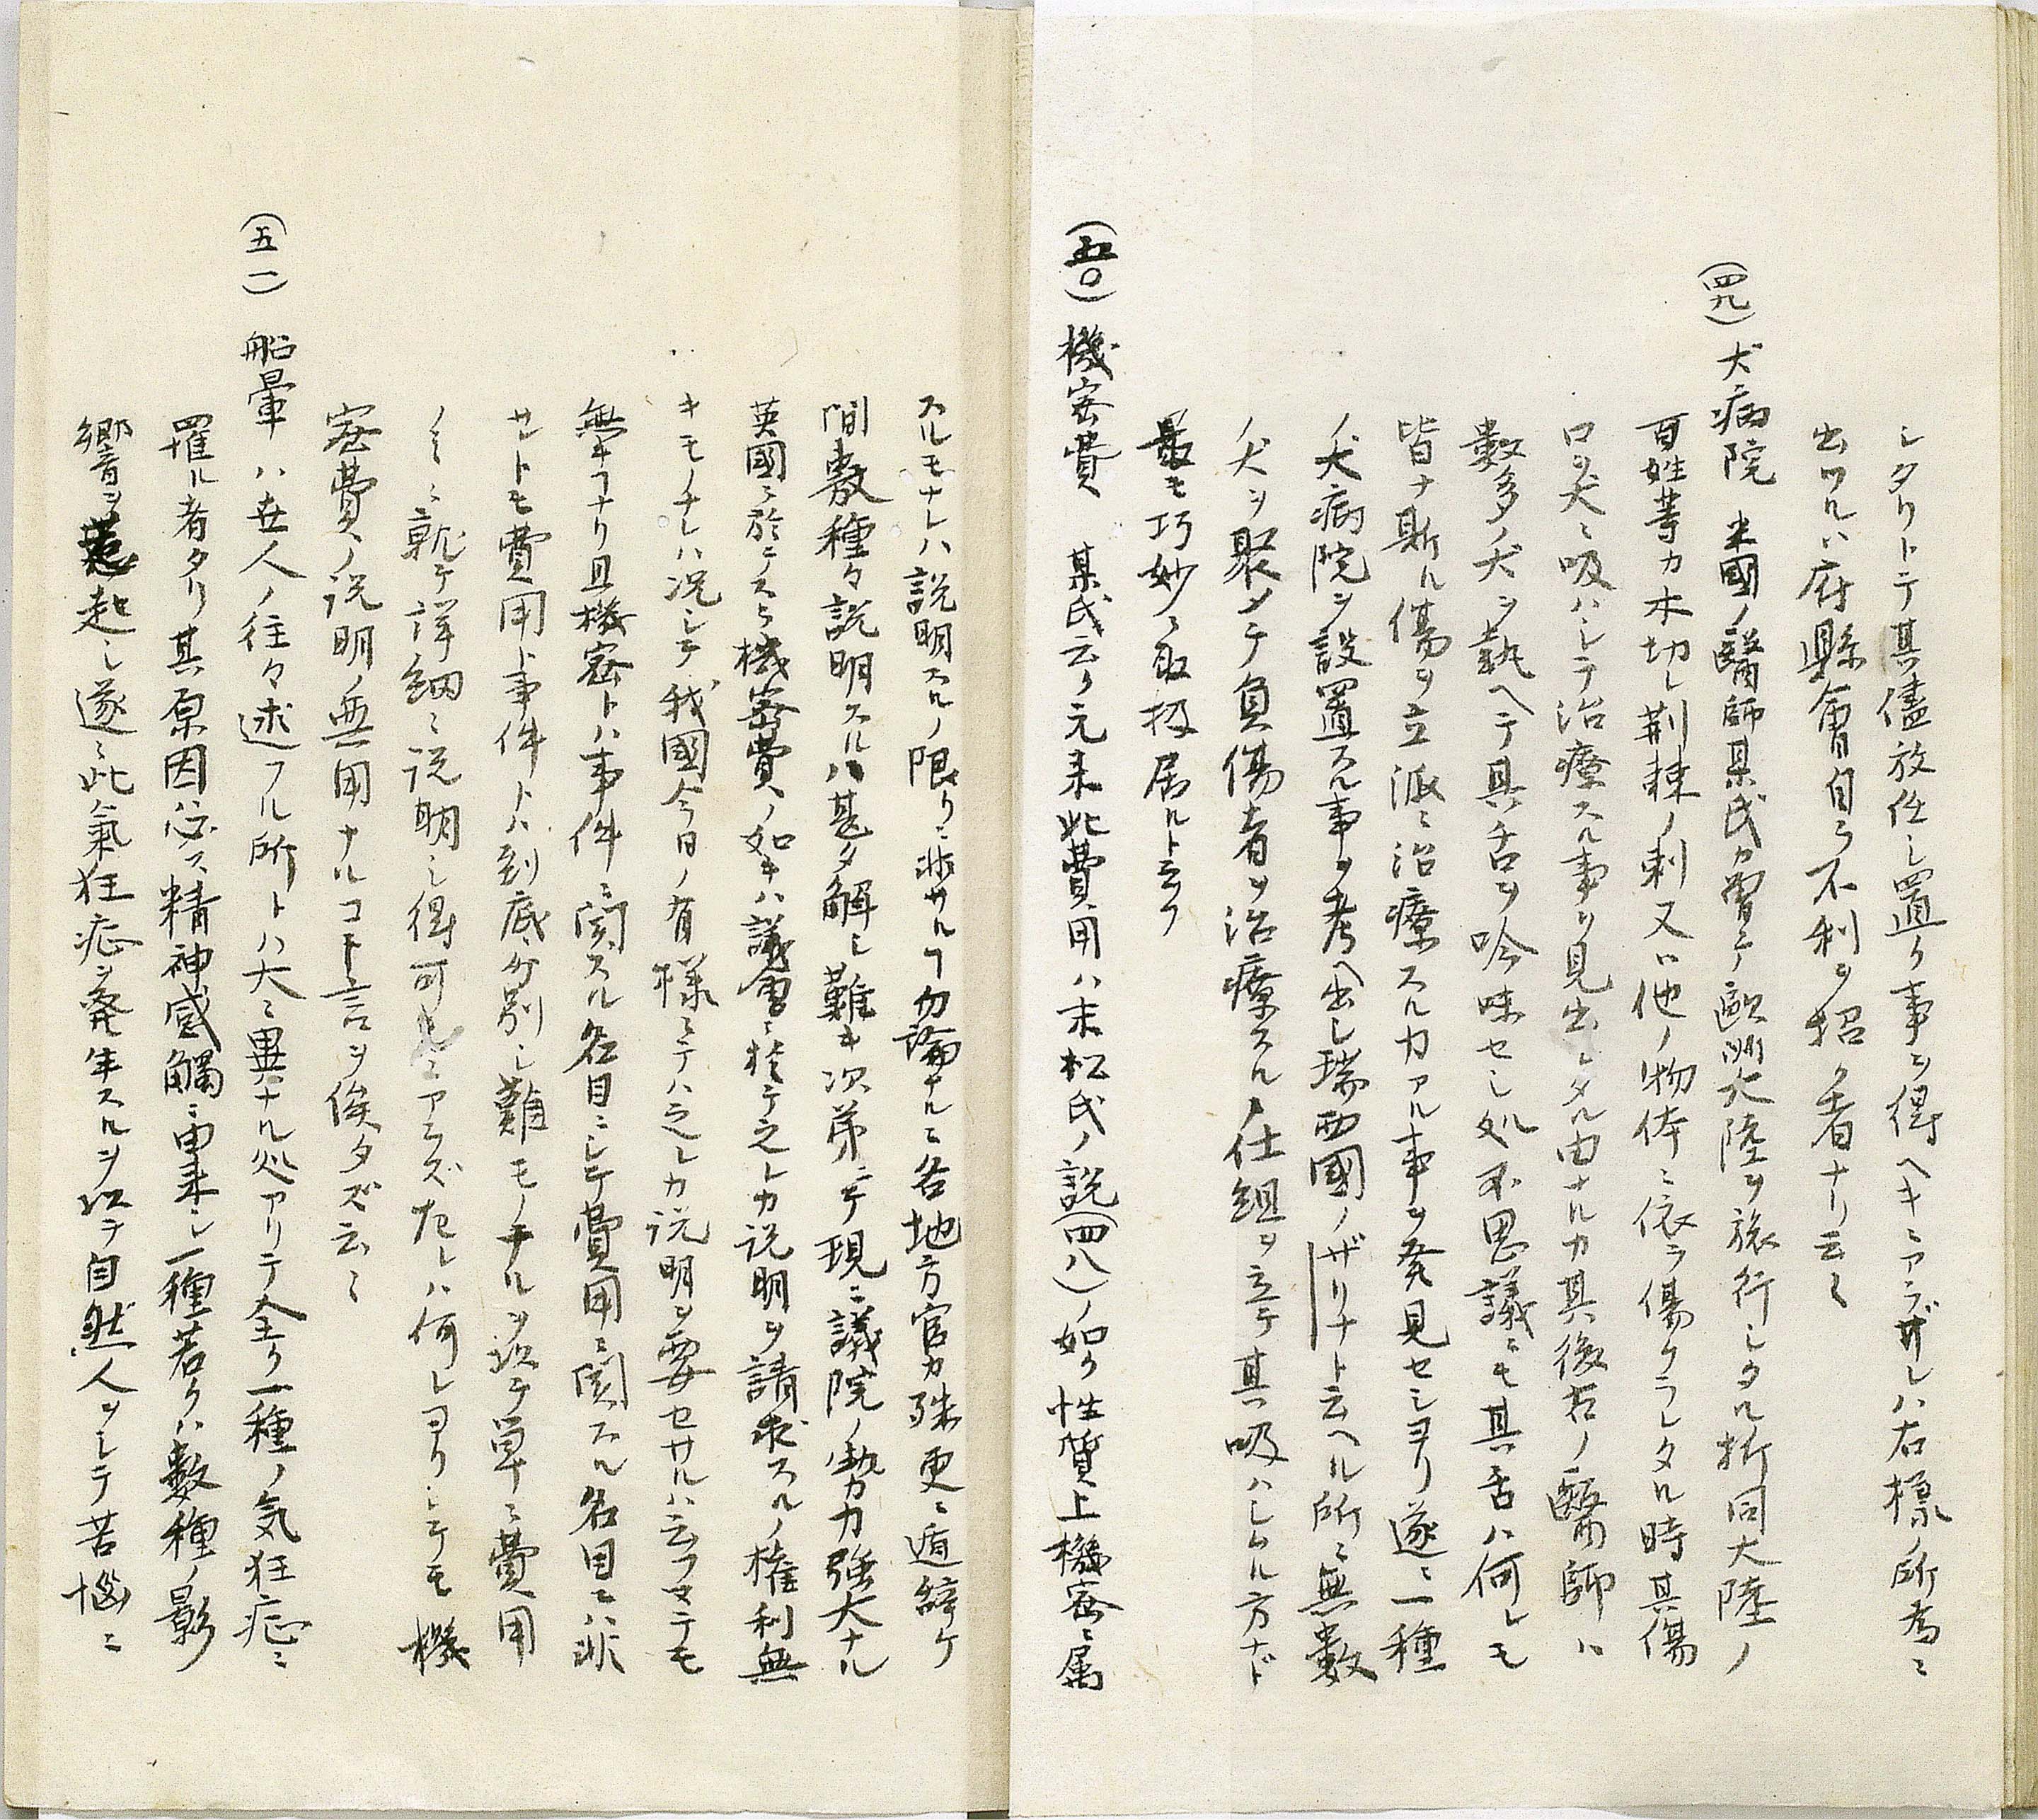 シタリトテ其儘放任シ置ク事ヲ得ヘキニアラザレハ右様ノ所為ニ
出ツルハ府縣會自ラ不利ヲ招ク者ナリ云々
(四九)犬病院 米國ノ醫師某氏カ曽テ歐洲大陸ヲ旅行シタル折同大陸ノ
百姓等カ木切レ荆棘ノ刺又ハ他ノ物体ニ依ラ傷ケラレタル時其傷
口ヲ犬ニ吸ハシテ治療スル事ヲ見出シタル由ナルカ其後右ノ醫師ハ
數多ノ犬ヲ執ヘテ具舌ヲ吟味セシ処不思議ニモ其舌ハ何レモ
皆ナ斯ル傷ヲ立派ニ治療スルカアル事ヲ発見セシヨリ遂ニ一種
ノ犬病院ヲ設置スル事ヲ考ヘ出シ瑞西國ノザリナト云ヘル所ニ無數
ノ犬ヲ聚メテ負傷者ヲ治療スルノ仕組ヲ立テ其吸ハシムル方ナド
最モ巧妙ニ取扱居ルト云フ
(五〇)機密費 某氏云ク元来此費用ハ末松氏ノ説(四八)ノ如ク性質上機密ニ属
スルモナレハ説明スルノ限リニ非サルヿ勿論ナルニ各地方官カ殊更ニ遁辞ケ
間敷種々説明スルハ甚タ解シ難キ次第ニテ現ニ議院ノ勢力強大ナル
英國ニ於テスラ機密費ノ如キハ議會ニ於テ之レカ説明ヲ請求スルノ権利無
キモノナレハ况シテ我國今日ノ有様ニテハ之レカ説明ヲ要セサルハ云フマテモ
無キヿナリ且機密トハ事件ニ関スル名目ニシテ費用ニ関スル名目ニハ非
サレトモ費用ト事件トハ到底分別シ難モノナルヲ以テ単ニ費用
ノミニ就テ詳細ニ説明シ得可キニアラズ左レハ何レヨリシテモ機
密費ノ説明ノ無用ナルコト言ヲ俟タズ云々
(五一)船暈ハ世人ノ往々述フル所トハ大ニ異ナル処アリテ全ク一種ノ気狂症ニ
罹ル者タリ其原因必ス精神感觸ニ由来シ一種若クハ數種ノ影
響ヲ惹起シ遂ニ此氣狂症ヲ発生スルヲ以テ自然人ヲシテ苦悩ニ